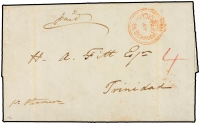 paid
H. A. Fitt Esqr
4
Trinidad
pr Steamer